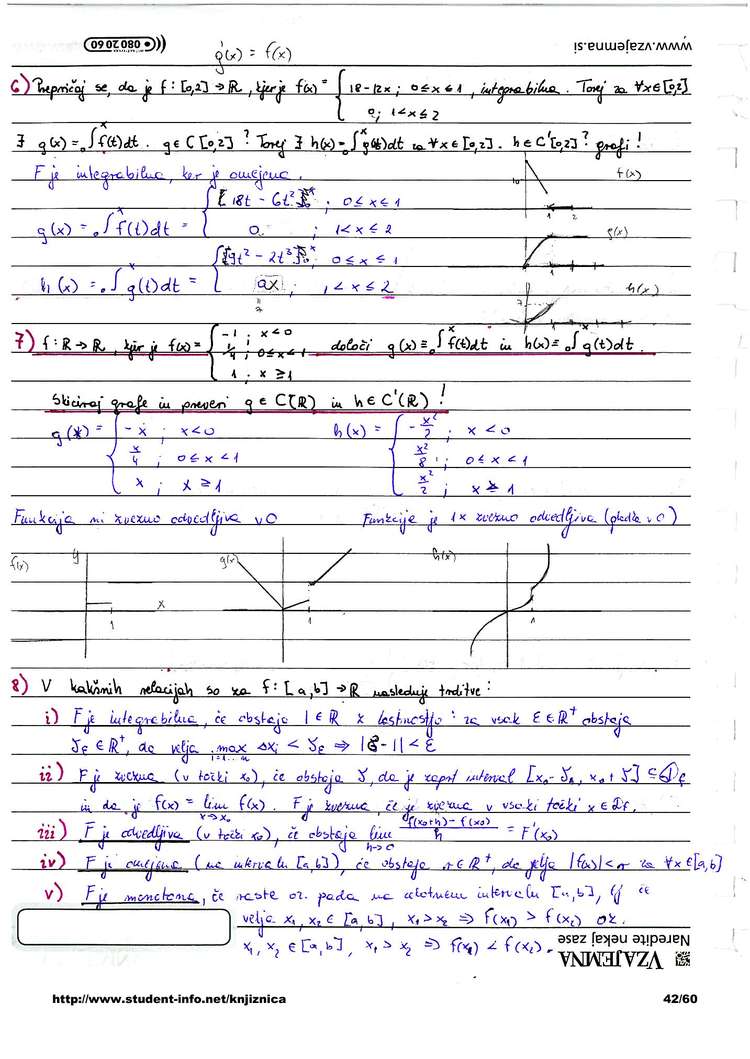 080 20 60
www.vzajemna.si
g'(x) = f(x)
6) Prepričaj se, da je f: [0,2] → R, kjer je f(x) = { 18-12x; 0≤x≤1, integrabilna. Torej za ∀x∈[0,2]
0; 1<x≤2
∃ g(x) = ₀∫ˣ f(t)dt. g∈C[0,2]? Torej ∃ h(x) = ₀∫ˣ g(t)dt za ∀x∈[0,2]. h∈C'[0,2]? grafi!
F je integrabilna, ker je omejena.
f(x)
g(x) = ₀∫ˣ f(t)dt = { [18t - 6t²]₀ˣ; 0≤x≤1
0; 1<x≤2
g(x)
h(x) = ₀∫ˣ g(t)dt = { [9t² - 2t³]₀ˣ; 0≤x≤1
ax; 1<x≤2
h(x)
7) f: R → R, kjer je f(x) = { -1; x<0
1/4; 0≤x<1
1; x≥1
določi g(x) ≡ ₀∫ˣ f(t)dt in h(x) ≡ ₀∫ˣ g(t)dt.
Skiciraj grafe in preveri g∈C(R) in h∈C'(R)!
g(x) = { -x; x<0
x/4; 0≤x<1
x; x≥1
h(x) = { -x²/2; x<0
x²/8; 0≤x<1
x²/2; x≥1
Funkcija ni zvezno odvedljiva v 0
Funkcija je 1x zvezno odvedljiva (gladka v 0)
f(x) y x 1
g(x) 1
h(x) 1
8) V kakšnih relacijah so za f: [a,b] → R naslednje trditve:
i) F je integrabilna, če obstaja I∈R z lastnostjo: za vsak ε∈R⁺ obstaja
δε∈R⁺, da velja max Δxi < δε ⇒ |σ-I| < ε
i=1...n
ii) F je zvezna (v točki x₀), če obstaja δ, da je zaprt interval [x₀-δ, x₀+δ] ⊆ Df
in da je f(x) = lim f(x). F je zvezna, če je zvezna v vsaki točki x∈Df.
x→x₀
iii) F je odvedljiva (v točki x₀), če obstaja lim (f(x₀+h)-f(x₀))/h = F'(x₀)
h→0
iv) F je omejena (na intervalu [a,b]), če obstaja r∈R⁺, da velja |f(x)|<r za ∀x∈[a,b]
v) F je monotona, če raste oz. pada na celotnem intervalu [a,b], tj če
velja x₁, x₂ ∈ [a,b], x₁>x₂ ⇒ f(x₁) > f(x₂) oz.
x₁, x₂ ∈ [a,b], x₁>x₂ ⇒ f(x₁) < f(x₂).
Naredite nekaj zase
VZAJEMNA
http://www.student-info.net/knjiznica
42/60